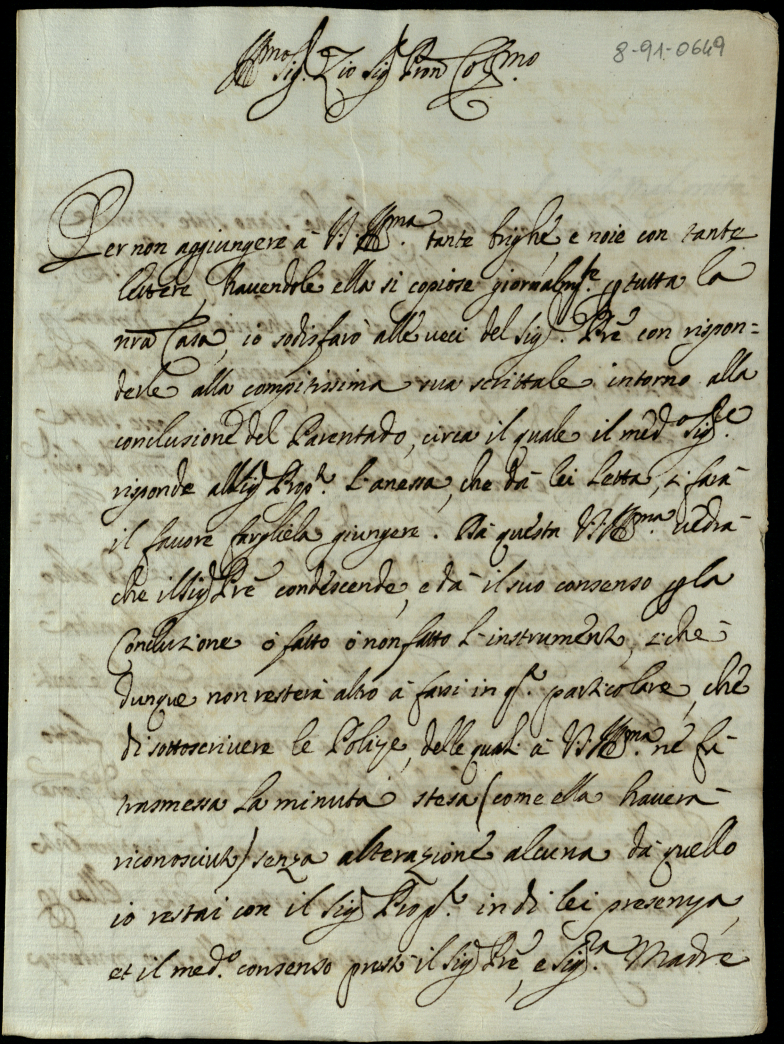 8-91-0649
Ill.mo Sig.r Zio Sig.r Pron Col.mo
Per non aggiungere à V.S. Ill.ma tante brighe, e noie con tante
lettere, havendole ella si copiose giornalm.te p tutta la
nrã Casa, io sodisfarò alle veci del Sig.r Prẽ con rispon=
derle alla compitissima sua scrittale intorno alla
conclusione del Parentado, circa il quale il med.o Sig.re
risponde all Sig.r Prop.to l'anessa, che dà lei letta, si farà
il favore fargliela giungere. Dà questa V.S. Ill.ma vedrà
che il Sig.r Prẽ condescende, e dà il suo consenso p la
Conclusione ò fatto ò non fatto l'instrumento, siche
dunque non resterà altro à farsi in q.to particolare, che
di sottoscrivere le Polize, delle quali à V.S. Ill.ma ne fù
trasmessa la minuta stesa (come ella haverà
riconosciuto) senza alterazione alcuna dà quello
io restai con il Sig.r Prop.to in di lei presenza,
et il med.o consenso prestò il Sig.r Prẽ, e Sig.ra Madre